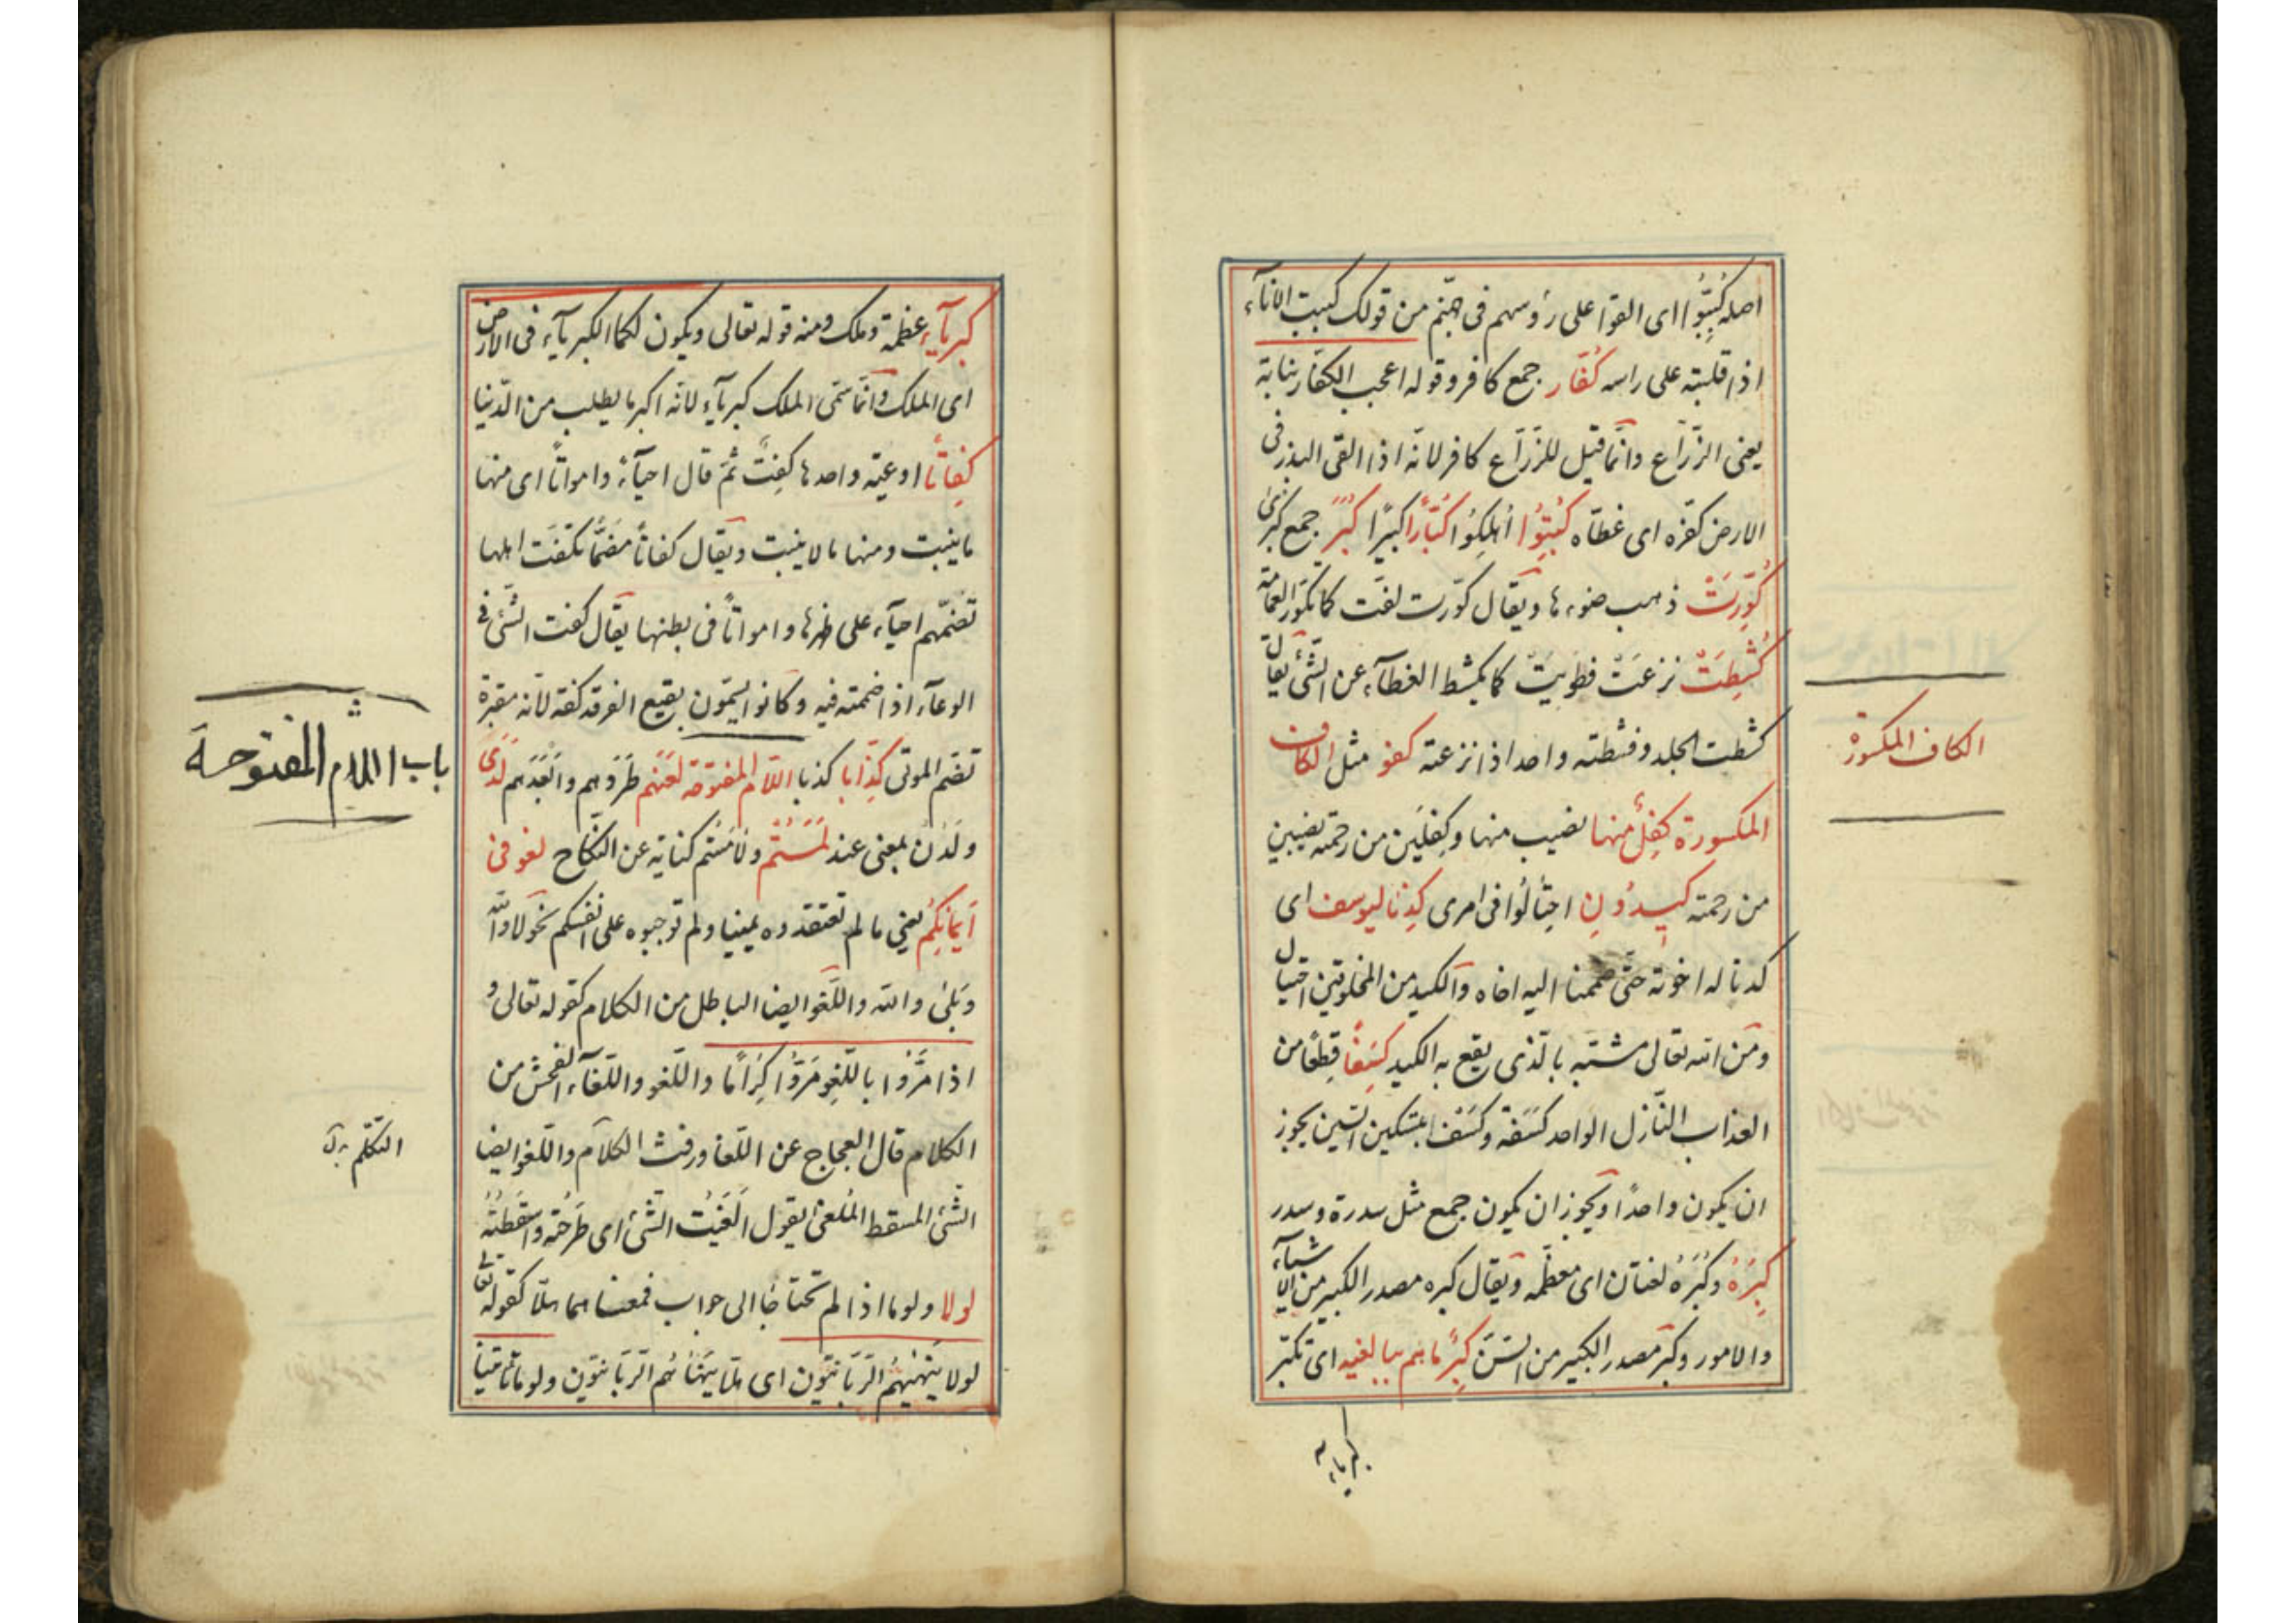 اصله كُبِّبُوا اى القوا على رؤسهم فى جهنم من قولك كببت الاناء
اذا قلبته على راسه كُفَّار جمع كافر وقوله اعجب الكفار نباته
يعنى الزّرّاع وانّما قيل للزّرّاع كافر لانّه اذا القى البذر فى
الارض كفّره اى غطّاه كُبِتُوا أُهلِكُوا كُبَّارًا كبيرًا كُبَرٌ جمع كبرى
كُوِّرَتْ ذهب ضوءها ويقال كوّرت لفّت كما تكوّر العمامة
كُشِطَتْ نزعَتْ فطُوِيَتْ كما يكشط الغطآء عن الشّئ يقال
كشطت الجلد وقشطته واحد اذا نزعته كفو مثل الكاف
الكاف المكسورة
المكسورة كِفلٌ منها نصيب منها وكِفلَين من رحمته نصيبين
من رحمته كيدُونِ احتَالُوا فى امرى كِدْنا ليوسف اى
كدنا له اخوته حتّى ضممنا اليه اخاه والكيد من المخلوقين احتيال
ومن الله تعالى مشتبه بالّذى يقع به الكيد كِسَفًا قِطعًا من
العذاب النّازل الواحد كسفة وكسفا بتسكين السّين يجوز
ان يكون واحدًا ويجوز ان يكون جمع مثل سدرة وسدر
كِبرَهُ وكُبرَهُ لغتان اى معظّمه ويقال كبره مصدر الكبير من الاشياء
والامور وكبر مصدر الكبير من السّنّ كِبرٌ ما هم ببالغيه اى تكبّر
كبرياء
كبرآء عظمة وملك ومنه قوله تعالى ويكون لكما الكبرياء فى الارض
اى الملك وانّما سمّى الملك كبرياء لانّه اكبر ما يطلب من الدّنيا
كِفَاتًا اوعيّه واحدها كِفتٌ ثمّ قال احيآءً وامواتًا اى منها
ما ينبت ومنها ما لا ينبت ويقال كفاتًا مضمًّا تكفت اهلها
تضمّهم احيآء على ظهرها وامواتًا فى بطنها يقال كفت الشّئ فى
الوعآء اذا ضممته فيه وكانوا يسمّون بقيع الغرقد كفتة لانّه مقبرة
تضمّ الموتى كِذّابا كذبا اللّام المفتوحة لعنهم طَرَدهم وابعَدَهم لَدَى
باب اللام المفتوحة
ولَدُن بمعنى عند لَمَسْتُم ولامَسْتُم كناية عن النّكاح لغو فى
أيمانِكُم يعنى ما لم تعتقدوه يمينا ولم توجبوه على انفسكم نحو لا والله
وبَلى والله واللّغو ايضا الباطل من الكلام كقوله تعالى و
اذا مَرُّوا باللّغو مَرُّوا كِرَامًا واللّغو واللّغآء الفحش من
الكلام قال العجاج عن اللّغا ورفث الكلام واللّغو ايضا
التكلم
الشّئ المسقط المُلغى يقول الغَيتُ الشّئ اى طرحته واسقطته
لولا ولوما اذا لم تحتاجا الى جواب فمعناهما هلّا كقوله تعالى
لولا يَنهيهُم الرّبّانيّون اى هلّا يَنهَاهُم الرّبّانيّون ولوما تأتينا